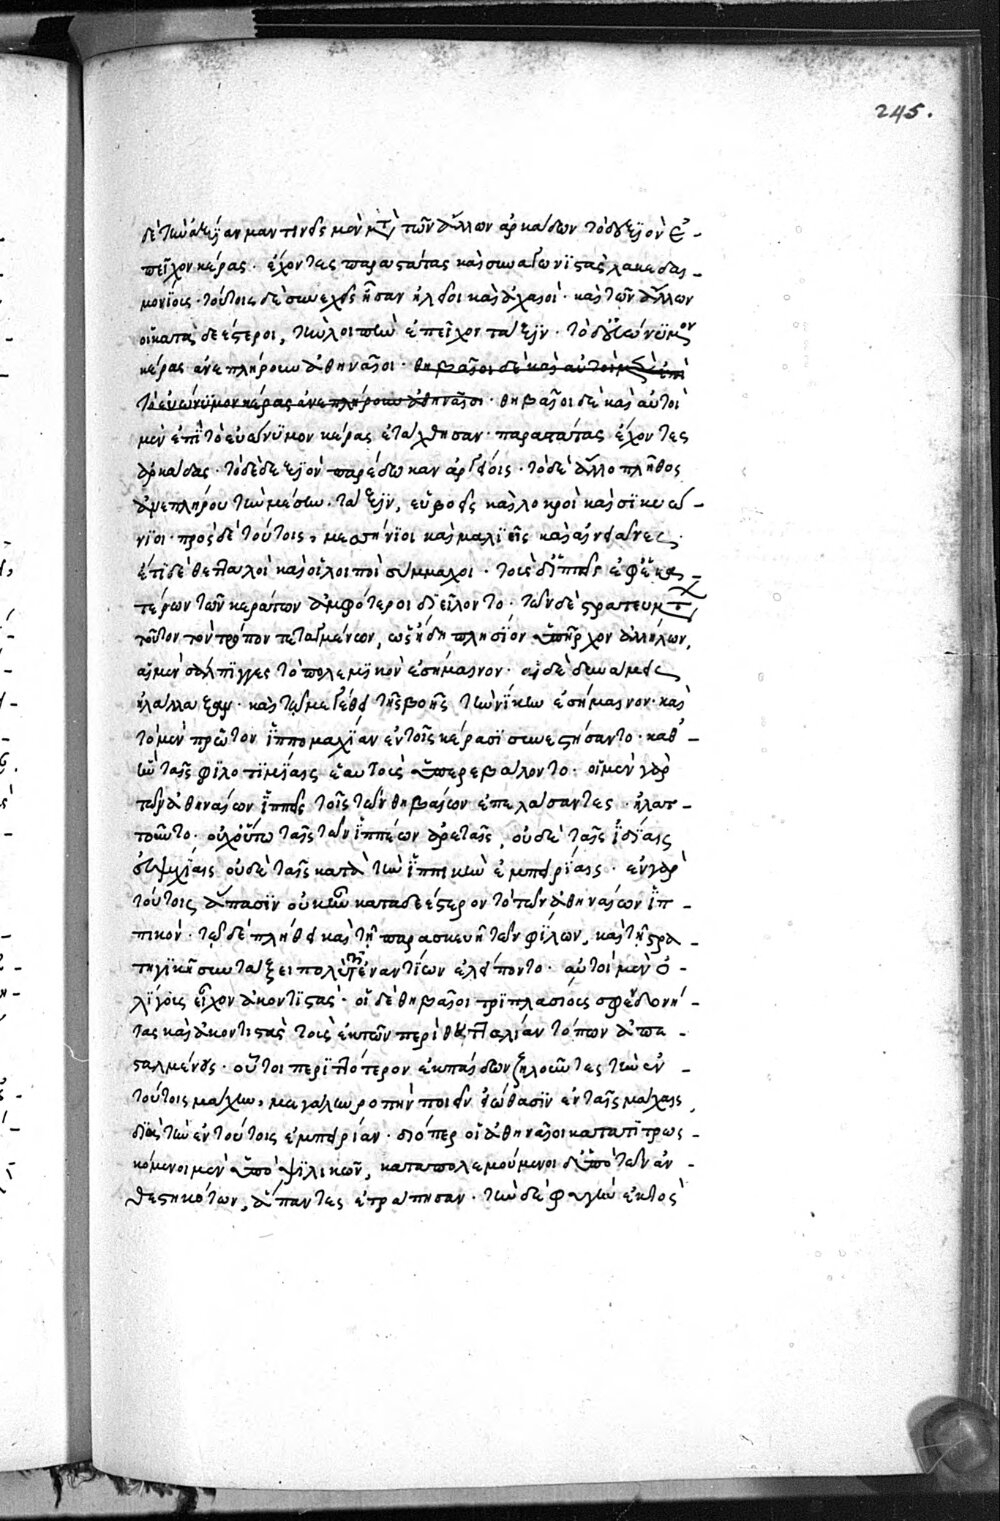 245.
δὲ τὴν ἀξίαν μαντινεῖς μὲν μετὰ τῶν ἄλλων ἀρκάδων τὸ δεξιὸν ἐ-
πεῖχον κέρας. ἔχοντες παραστάτας καὶ συναγωνιστὰς λακεδαι-
μονίοις. τούτοις δὲ συνεχεῖς ἦσαν ἠλεῖοι καὶ ἀχαιοί. καὶ τῶν ἄλλων
οἱ καταδεέστεροι, τὴν λοιπὴν ἐπεῖχον τάξιν. τὸ δ' εὐώνυμον
κέρας ἀνεπλήρουν ἀθηναῖοι. θηβαῖοι δὲ καὶ αὐτοὶ μὲν ἐπὶ
τὸ εὐώνυμον κέρας ἀνεπλήρουν ἀθηναῖοι. θηβαῖοι δὲ καὶ αὐτοὶ
μὲν ἐπὶ τὸ εὐώνυμον κέρας ἐτάχθησαν. παραστάτας ἔχοντες
ἀρκάδας. τὸ δὲ δεξιὸν παρέδωκαν ἀργείοις. τὸ δὲ ἄλλο πλῆθος
ἀνεπλήρου τὴν μέσην τάξιν, εὐβοεῖς καὶ λοκροὶ καὶ σικυώ-
νιοι. πρὸς δὲ τούτοις, μεσσήνιοι καὶ μαλιεῖς καὶ αἰνιᾶνες.
ἔτι δὲ θετταλοὶ καὶ οἱ λοιποὶ σύμμαχοι. τοὺς δ' ἱππεῖς ἐφ' ἑκα-
τέρων τῶν κεράτων ἀμφότεροι διεῖλοντο. τῶν δὲ στρατευμάτων
τοῦτον τὸν τρόπον τεταγμένων, ὡς ἤδη πλησίον ὑπῆρχον ἀλλήλων,
αἱ μὲν σάλπιγγες τὸ πολεμικὸν ἐσήμαινον. αἱ δὲ δυνάμεις
ἠλάλαξαν. καὶ τῷ μεγέθει τῆς βοῆς τὴν νίκην ἐσήμαινον. καὶ
τὸ μὲν πρῶτον ἱππομαχίαν ἐν τοῖς κέρασι συνεστήσαντο. καθ'
ἣν ταῖς φιλοτιμίαις ἑαυτοὺς ὑπερεβάλοντο. οἱ μὲν γὰρ
τῶν ἀθηναίων ἱππεῖς τοῖς τῶν θηβαίων ἐπελάσαντες. ἠλατ-
τοῦντο. οὐχ οὕτω ταῖς τῶν ἱππέων ἀρεταῖς, οὐδὲ ταῖς ἰδίαις
εὐψυχίαις οὐδὲ ταῖς κατὰ τὴν ἱππικὴν ἐμπειρίαις. ἐν γὰρ
τούτοις ἅπασιν οὐκ ἦν καταδεέστερον τὸ τῶν ἀθηναίων ἱπ-
πικόν. τῷ δὲ πλήθει καὶ τῇ παρασκευῇ τῶν ψιλῶν, καὶ τῇ στρα-
τηγικῇ συντάξει πολὺ τῶν ἐναντίων ἐλείποντο. αὐτοὶ μὲν ὀ-
λίγους εἶχον ἀκοντιστάς. οἱ δὲ θηβαῖοι τριπλασίους σφενδονή-
τας καὶ ἀκοντιστὰς τοὺς ἐκ τῶν περὶ θετταλίαν τόπων ἀπε-
σταλμένους. οὗτοι περιττότερον ἐκ παίδων ζηλοῦντες τὴν ἐν
τούτοις μάχην, μεγάλην ῥοπὴν ποιεῖν εἰώθασιν ἐν ταῖς μάχαις,
διὰ τὴν ἐν τούτοις ἐμπειρίαν. διόπερ οἱ ἀθηναῖοι κατατιτρωσ-
κόμενοι μὲν ὑπὸ ψιλικῶν, καταπολεμούμενοι δ' ὑπὸ τῶν ἀν-
θεστηκότων, ἅπαντες ἐτράπησαν. τὴν δὲ φυγὴν ἐκτὸς